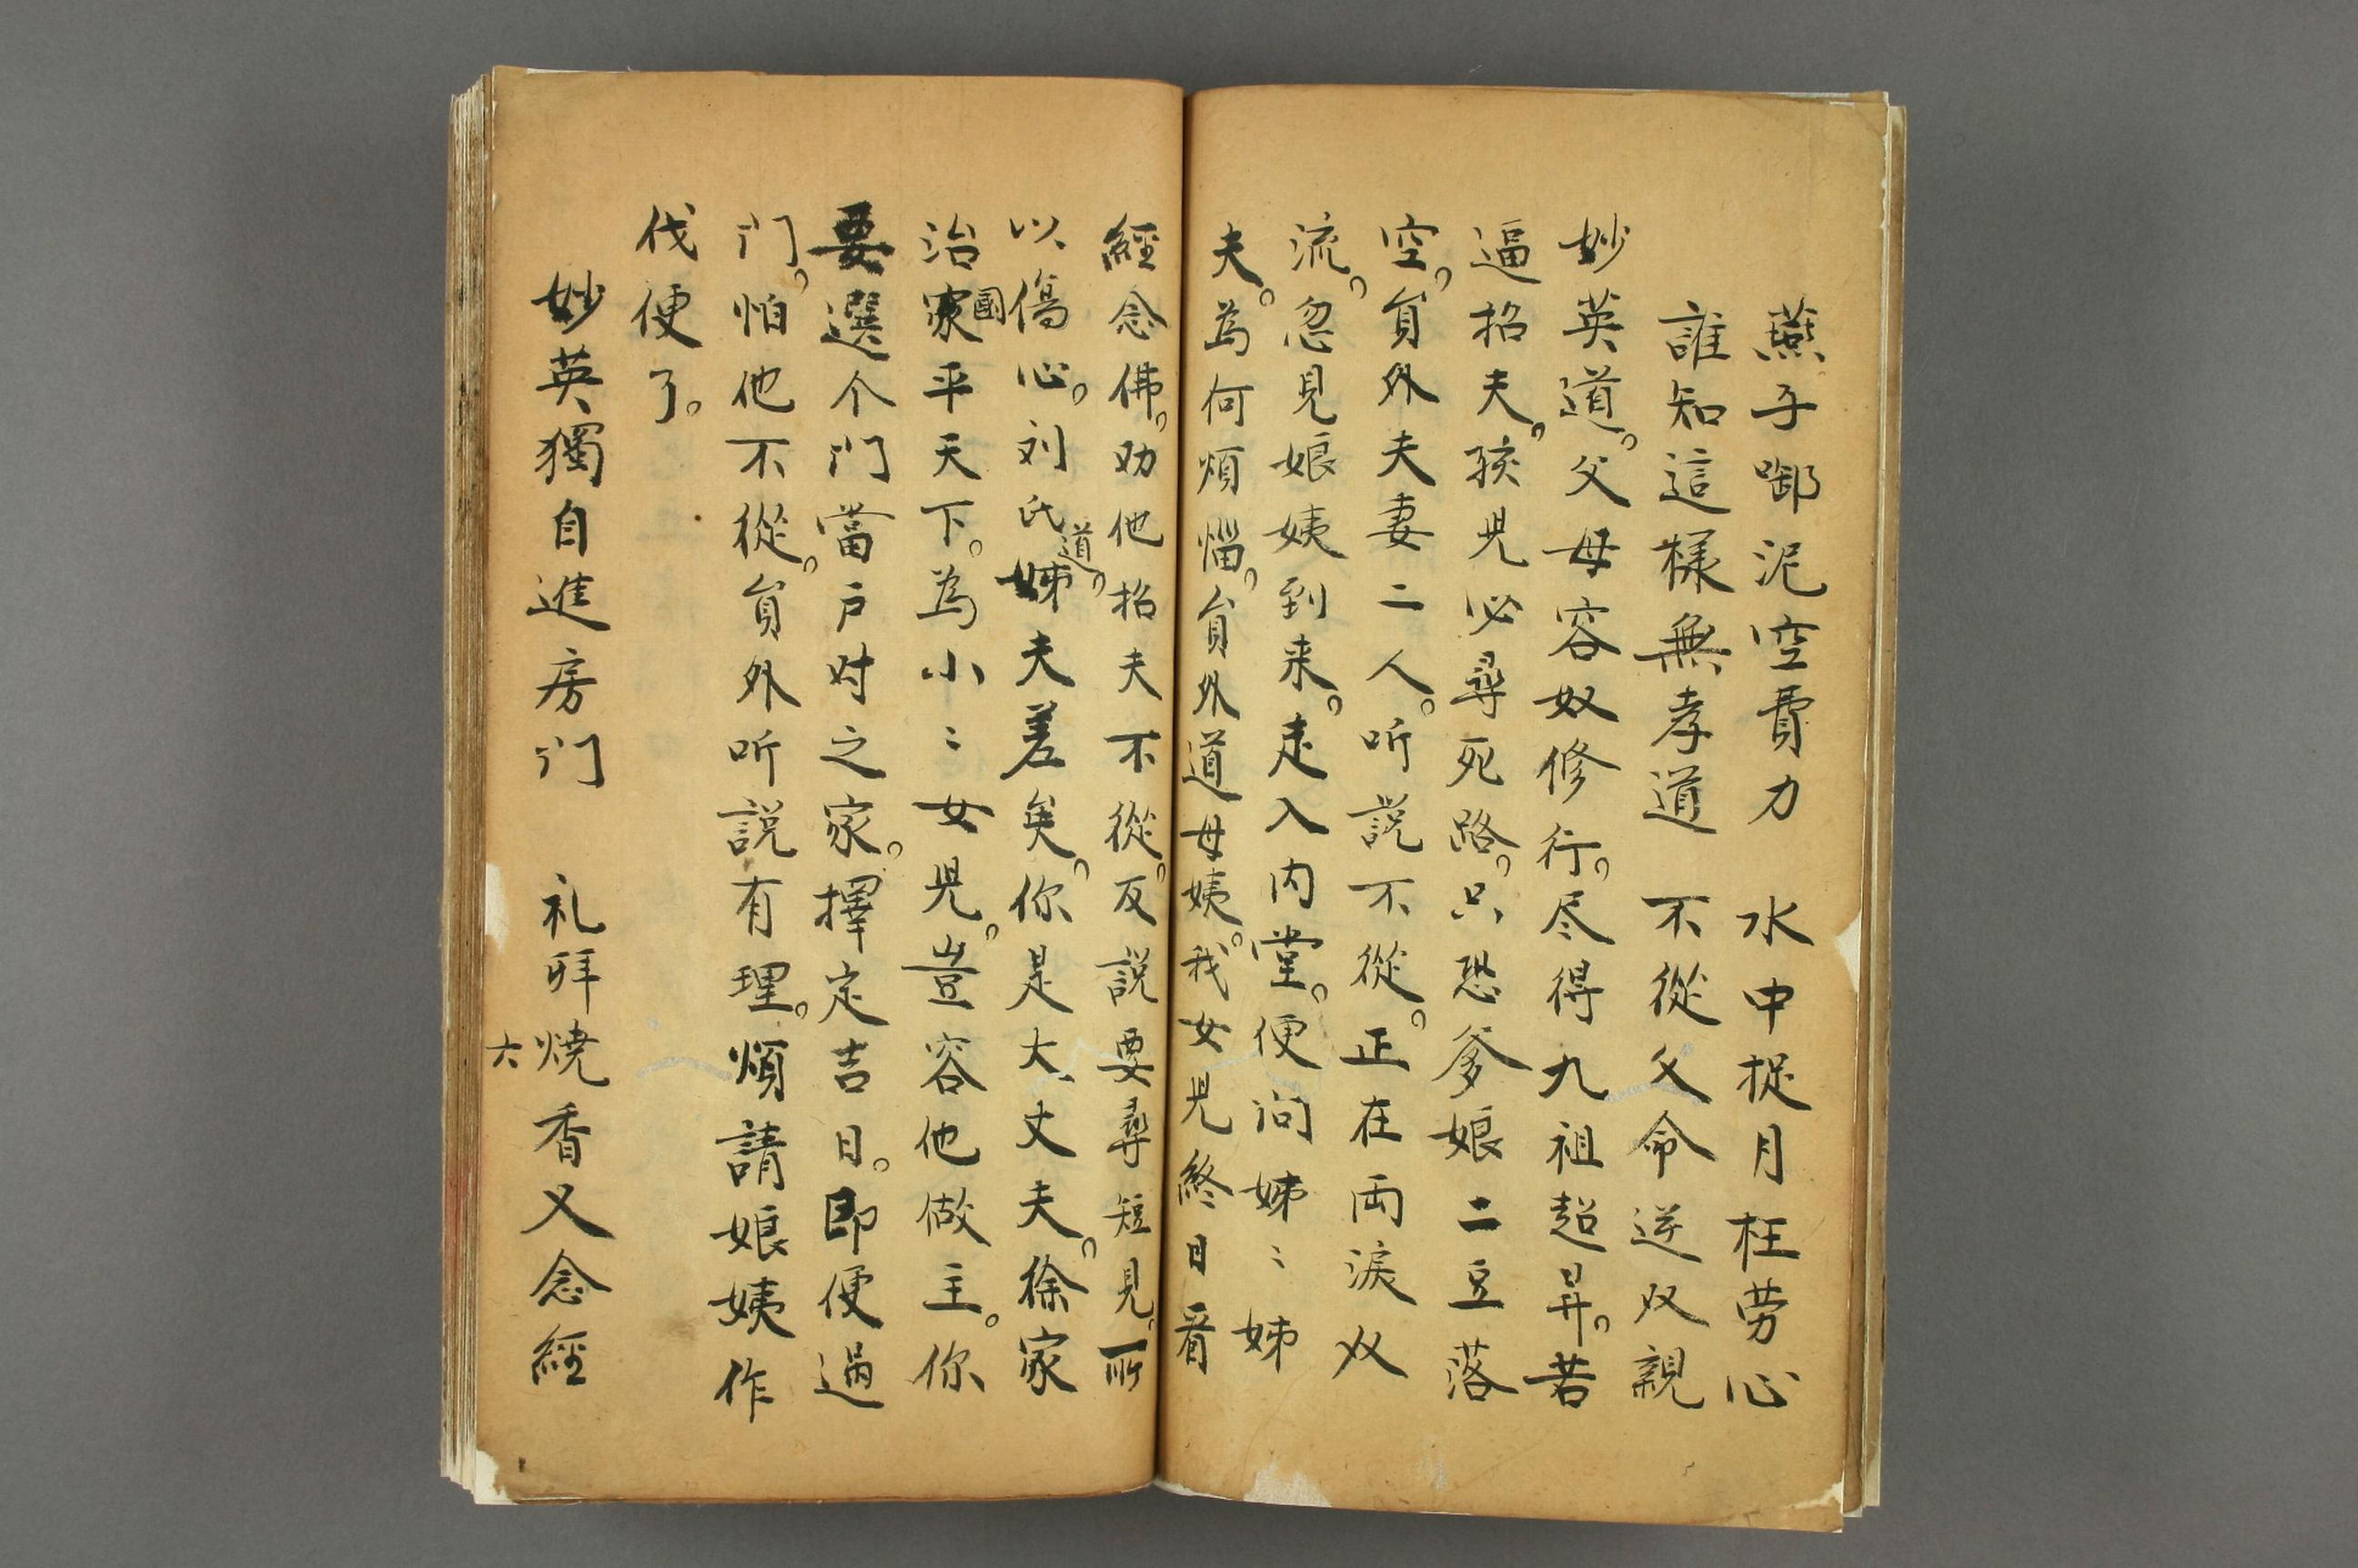 燕子啣泥空費力　水中捉月枉劳心
誰知這樣無孝道　不從父命逆双親
妙英道。父母容奴修行。尽得九祖超昇。若
逼招夫。孩児必尋死路。只恐爹娘二豆落
空。貟外夫妻二人。听説不從。正在両淚双
流。忽見娘姨到来。走入内堂。便问姊〻姊
夫。為何煩惱。貟外道母姨。我女児終日看
經念佛。劝他招夫不從。反説要尋短見。所
以傷心。刘氏道。姊夫差矣。你是大丈夫。徐家
治家國平天下。為小〻女児。豈容他做主。你
要選个门當户对之家。擇定吉日。即便過
门。怕他不從。貟外听説有理。煩請娘姨作
伐便了。
妙英獨自進房门　礼拜燒香又念經
六